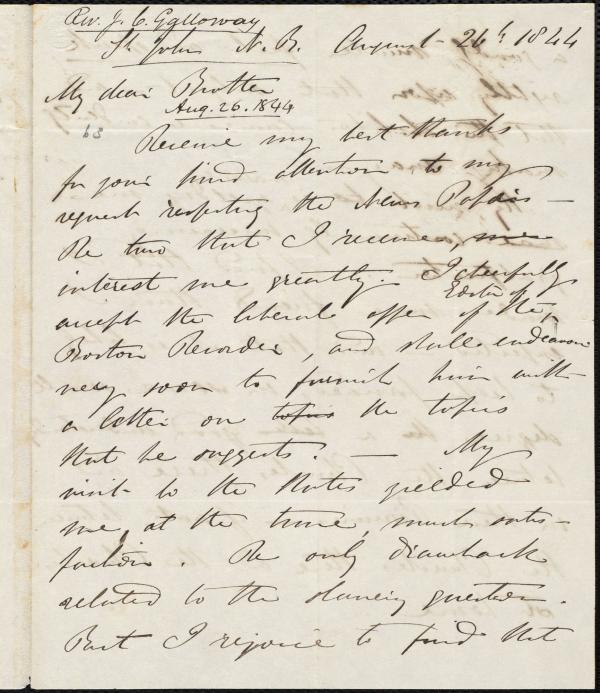 Rev. J. C. Galloway
St John N. B. August 26th 1844
My dear Brother
Aug. 26. 1844
63
Receive my best thanks
for your kind attention to my
request respecting the News Papers —
The two that I receive,
interest me greatly. I cheerfully
accept the liberal offer of the Editor of
Boston Recorder, and shall endeavour
very soon to furnish him with
a letter on topics the topics
that he suggests. — My
visit to the States yielded
me, at the time, much satis-
faction. The only drawback
related to the slavery question.
But I rejoice to find that